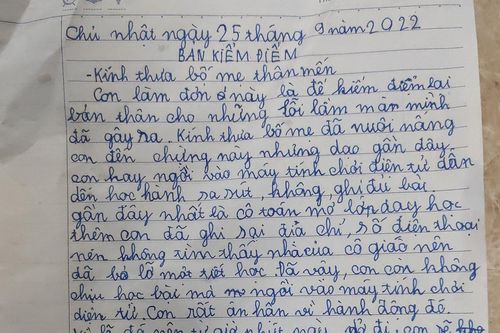 Chủ nhật ngày 25 tháng 9 năm 2022
BẢN KIỂM ĐIỂM
-Kính thưa bố mẹ thân mến
Con làm đơn này là để kiểm điểm lại
bản thân cho những lỗi lầm mà mình
đã gây ra. Kính thưa bố mẹ đã nuôi nấng
con đến chừng này nhưng dạo gần đây
con hay ngồi vào máy tính chơi điện tử dẫn
đến học hành sa sút, không ghi đủ bài
gần đây nhất là cô toán mở lớp dạy học
thêm con đã ghi sai địa chỉ, số điện thoại
nên không tìm thấy nhà của cô giáo nên
đã bỏ lỡ một tiết học. Đã vậy, con còn không
chịu học bài mà ngồi vào máy tính chơi
điện tử. Con rất ân hận vì hành động đó.